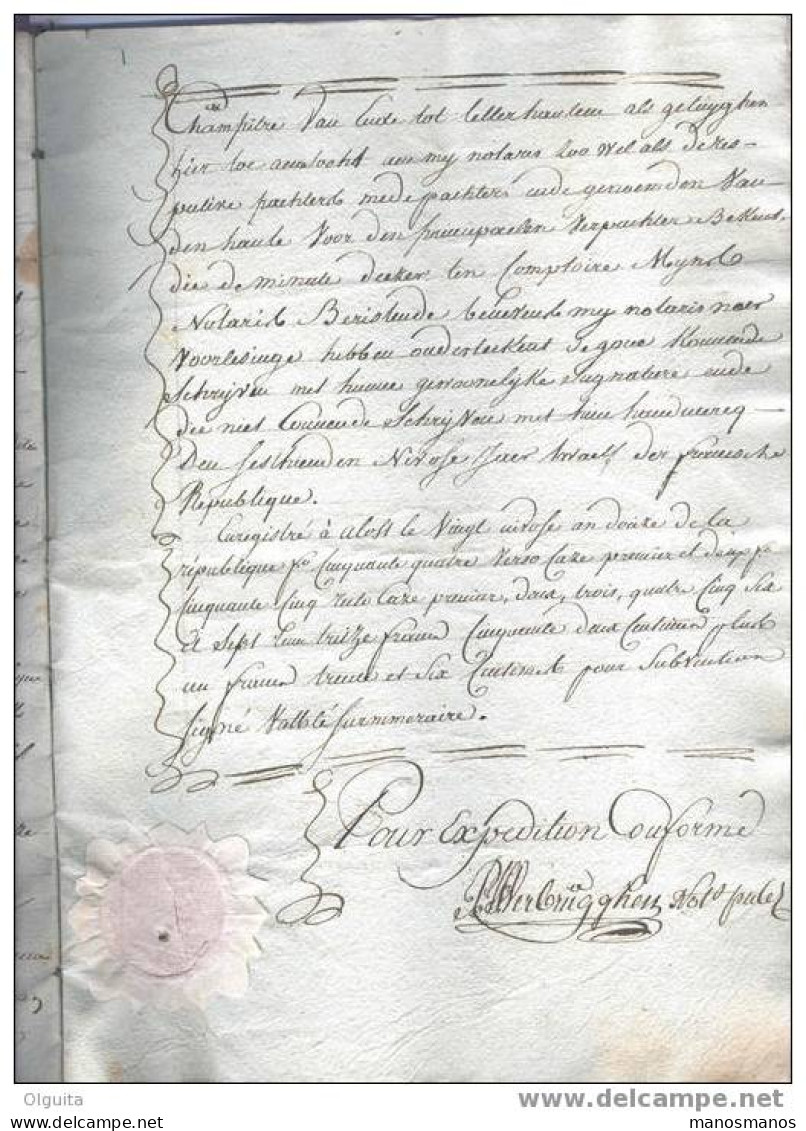 Champètre Van Ende tot Letterhautem als getuyghen
hier toe aensocht aen my notaris zoo wel als de res-
pective pachters medepachter ende genoemden Van-
den haute Voor den principaelen Verpachter Bekent,
die de minute deeser ten Comptoire Mynsb
Notaris Beristende benevens my notaris naer
Voorlesinge hebben onderteekent degone Konnende
Schryven met hunne gewoonelyke Signature ende
die niet Connende Schryven met hun handmercq –
Den sesthienden Nivose Jaer twaelf der fransche
Republique.
Enregistré à alost le Vingt nivose an douze de la
république fo Cinquante quatre Verso Caze premier et deux fo
Cinquante Cinq recto Caze premier, deux, trois, quatre Cinq Six
et Sept treize francs Cinquante deux Centimes plus
un franc trente et Six Centimes pour Subvention
signé Surnumeraire.
Pour Expedition Conforme
Verbrugghen Nots publ
Olguita
www.delcampe.net
manosmanos